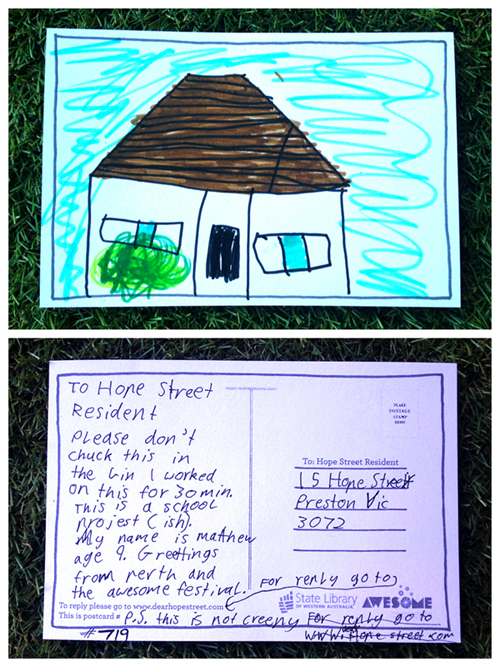 To Hope Street
Resident
Please don't
chuck this in
the bin I worked
on this for 30 min.
This is a school
projest (ish).
My name is matthew
age 9. Greetings
from perth and
the awesome festival.
To reply please go to www.dearhopestreet.com
This is postcard #
#719
P.S. this is not creepy For reply go to
PLACE
POSTAGE
STAMP
HERE
To: Hope Street Resident
15 Hope Street
Preston Vic
3072
For reply go to
State Library
OF WESTERN AUSTRALIA
AWESOME